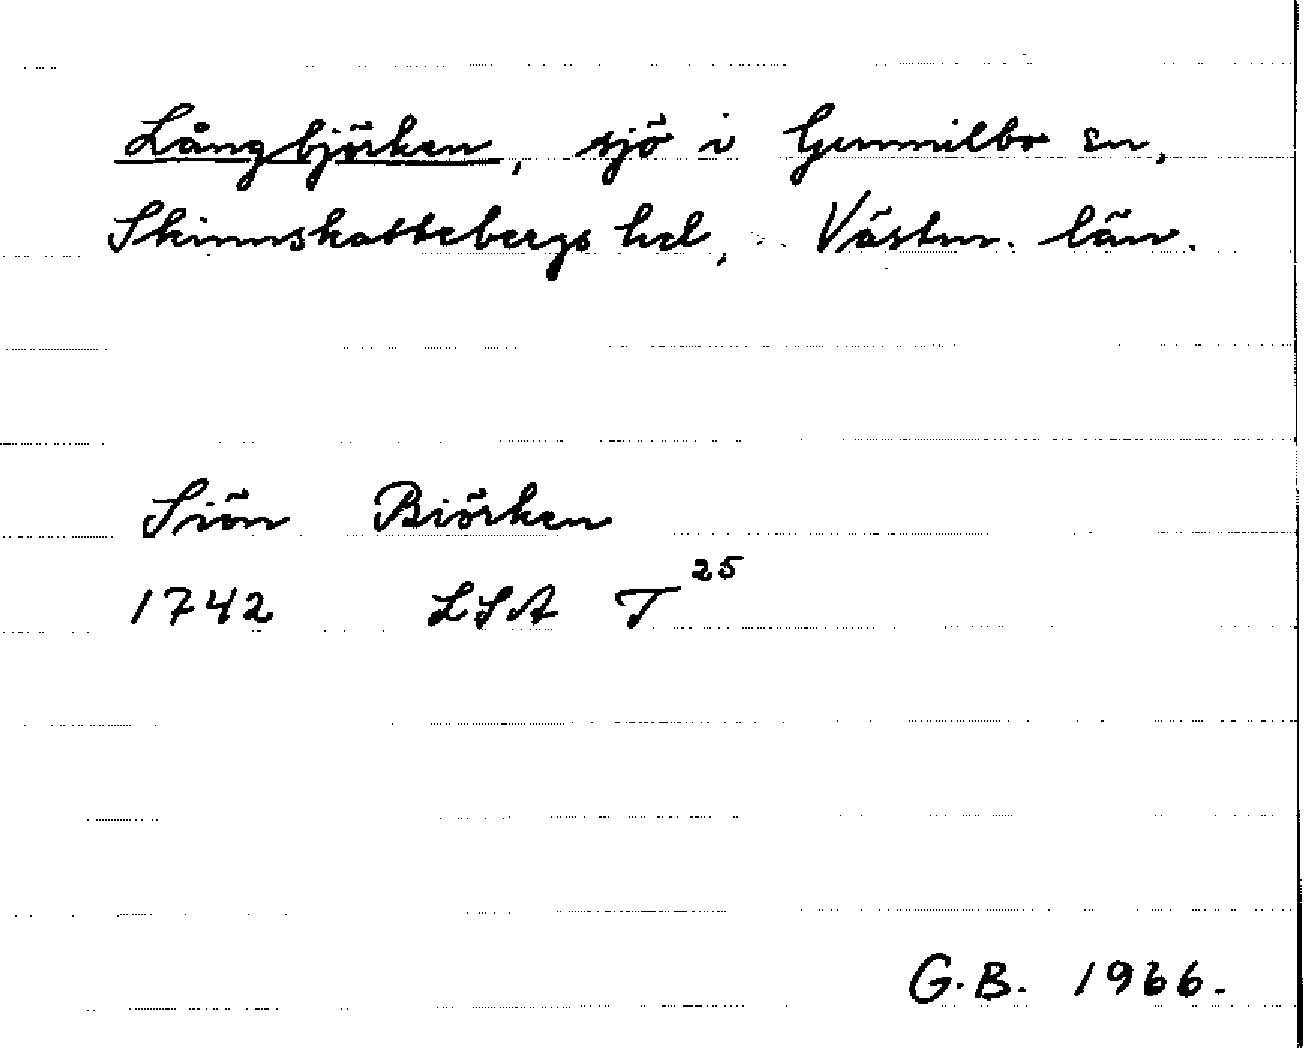 Långbjörken, sjö i Gunnilbo sn,
Skinnskattebergs hd, Västm. län.
Siön Biörken
1742 LSA T²⁵
G.B. 1966.